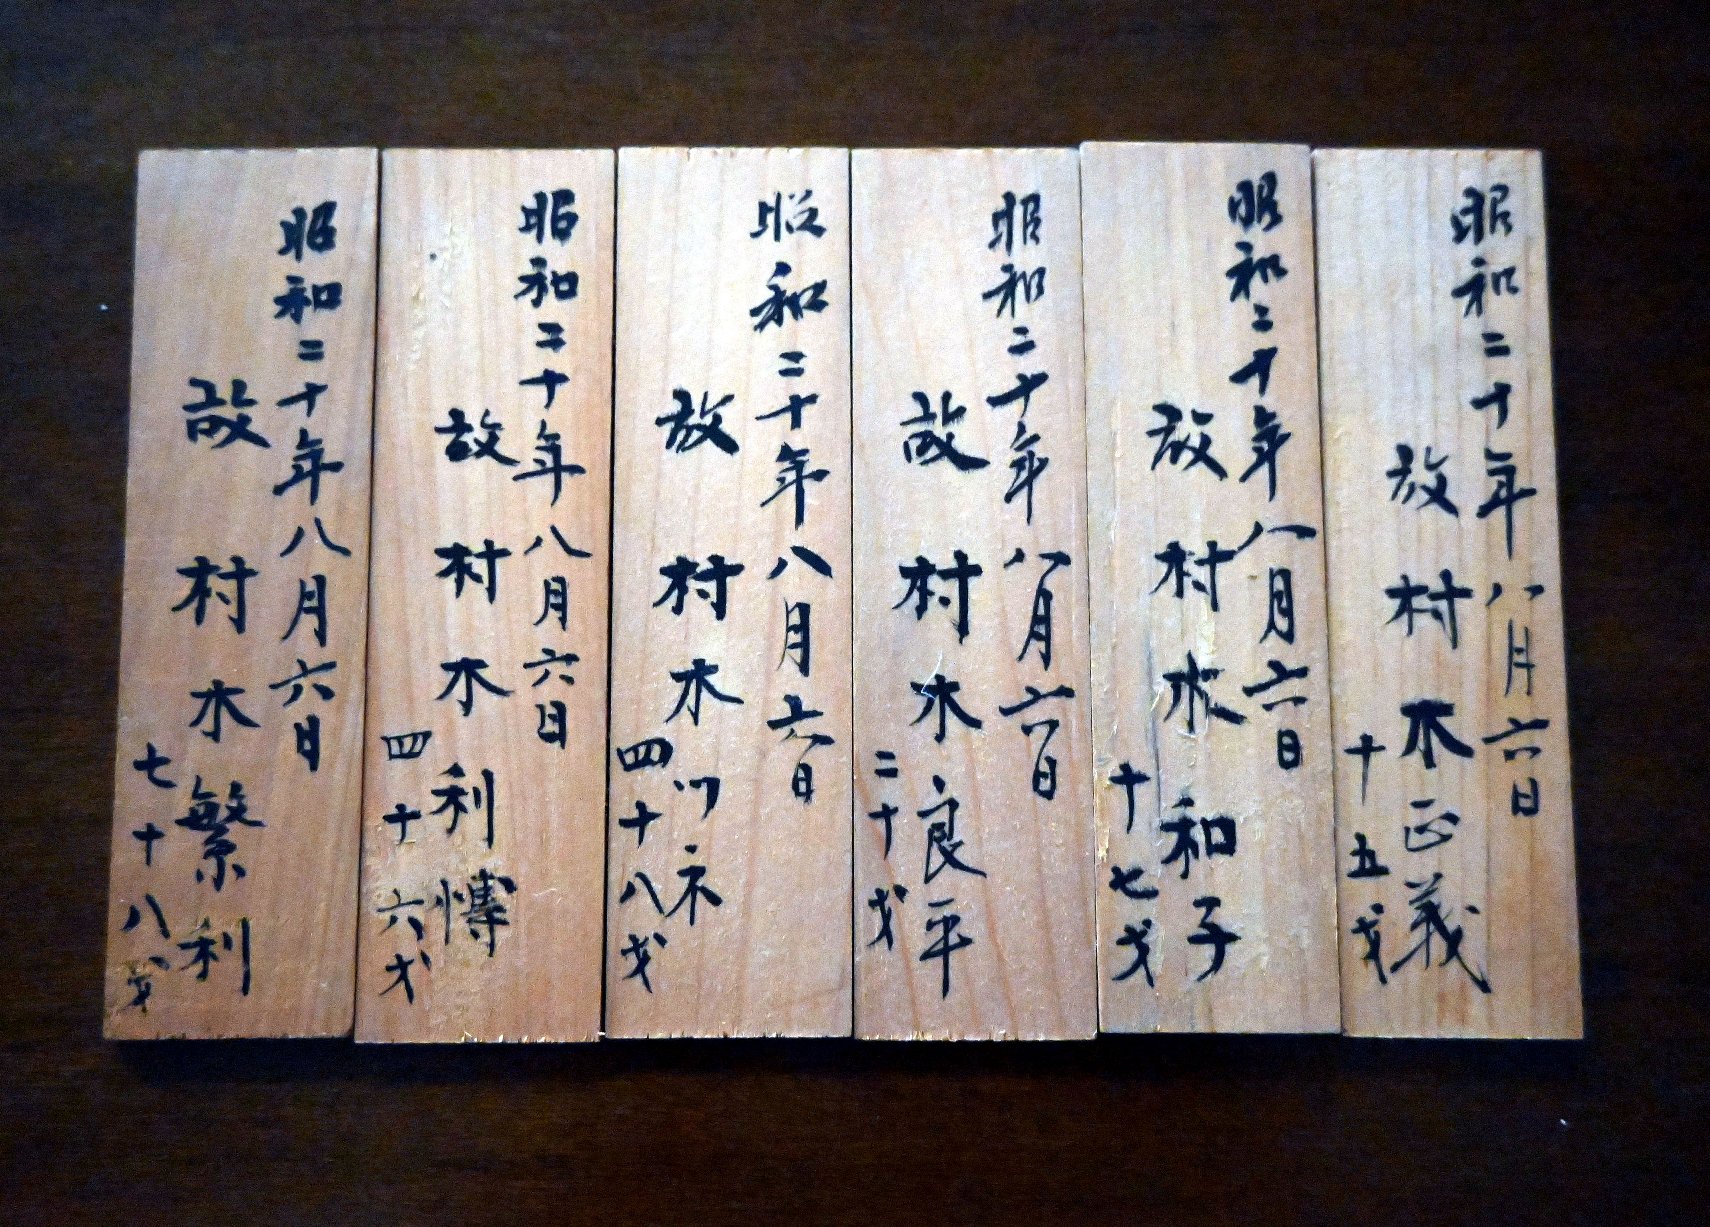 昭和二十年八月六日
故 村木正義
十五才
昭和二十年八月六日
故 村木和子
十七才
昭和二十年八月六日
故 村木良平
二十才
昭和二十年八月六日
故 村木ツネ
四十八才
昭和二十年八月六日
故 村木利博
四十六才
昭和二十年八月六日
故 村木繁利
七十八才